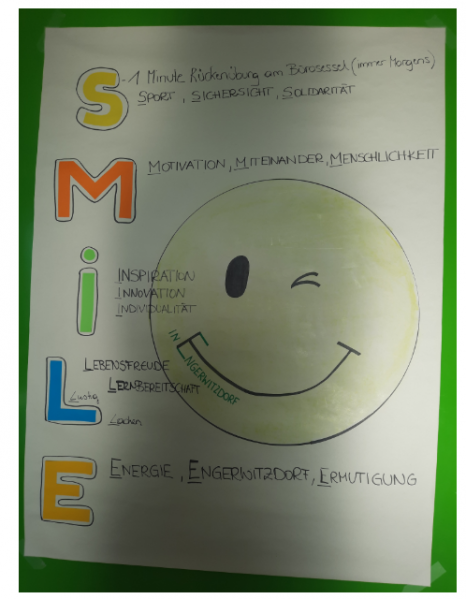 S - 1 Minute Rückenübung am Bürosessel (immer Morgens)
SPORT, SICHERSICHT, SOLIDARITÄT
M MOTIVATION, MITEINANDER, MENSCHLICHKEIT
i INSPIRATION
INNOVATION
INDIVIDUALITÄT
IN ENGERWITZDORF
L LEBENSFREUDE
LERNBEREITSCHAFT
Lustig,
Lachen
E ENERGIE, ENGERWITZDORF, ERMUTIGUNG